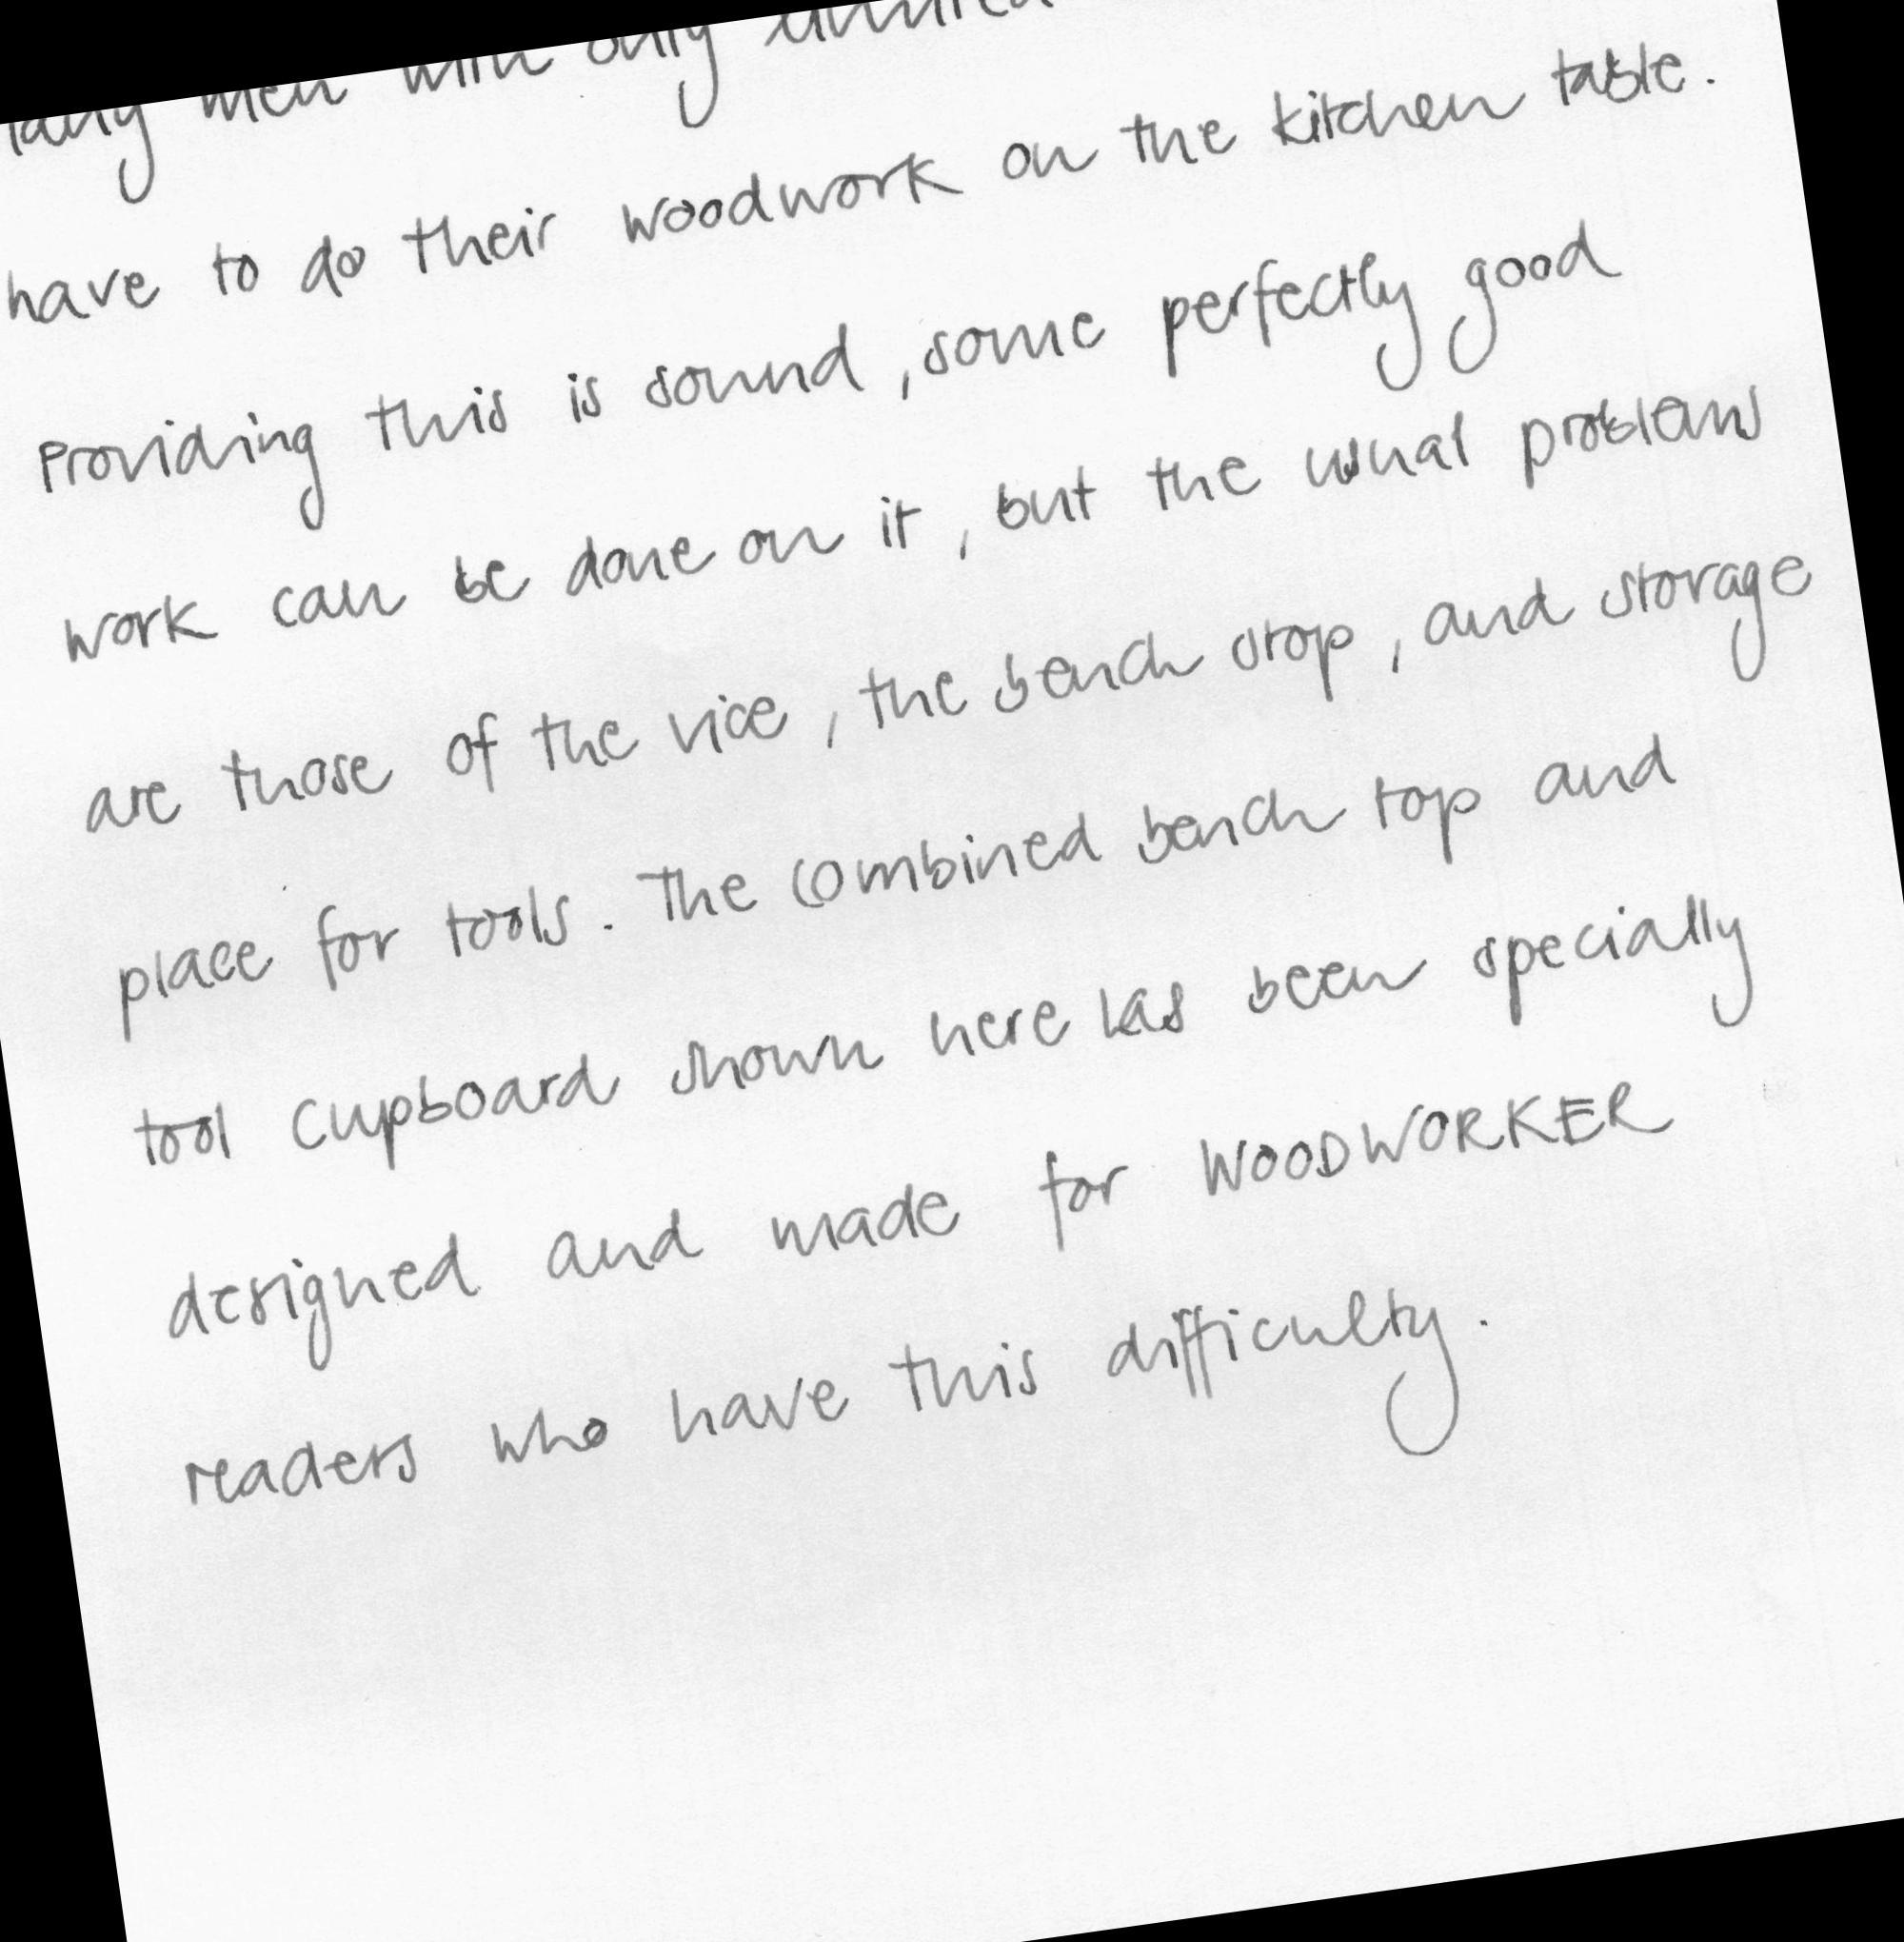 men with only limited
have to do their woodwork on the kitchen table.
Providing this is sound, some perfectly good
work can be done on it, but the usual problems
are those of the vice, the bench stop, and storage
place for tools. The combined bench top and
tool cupboard shown here has been specially
designed and made for WOODWORKER
readers who have this difficulty.